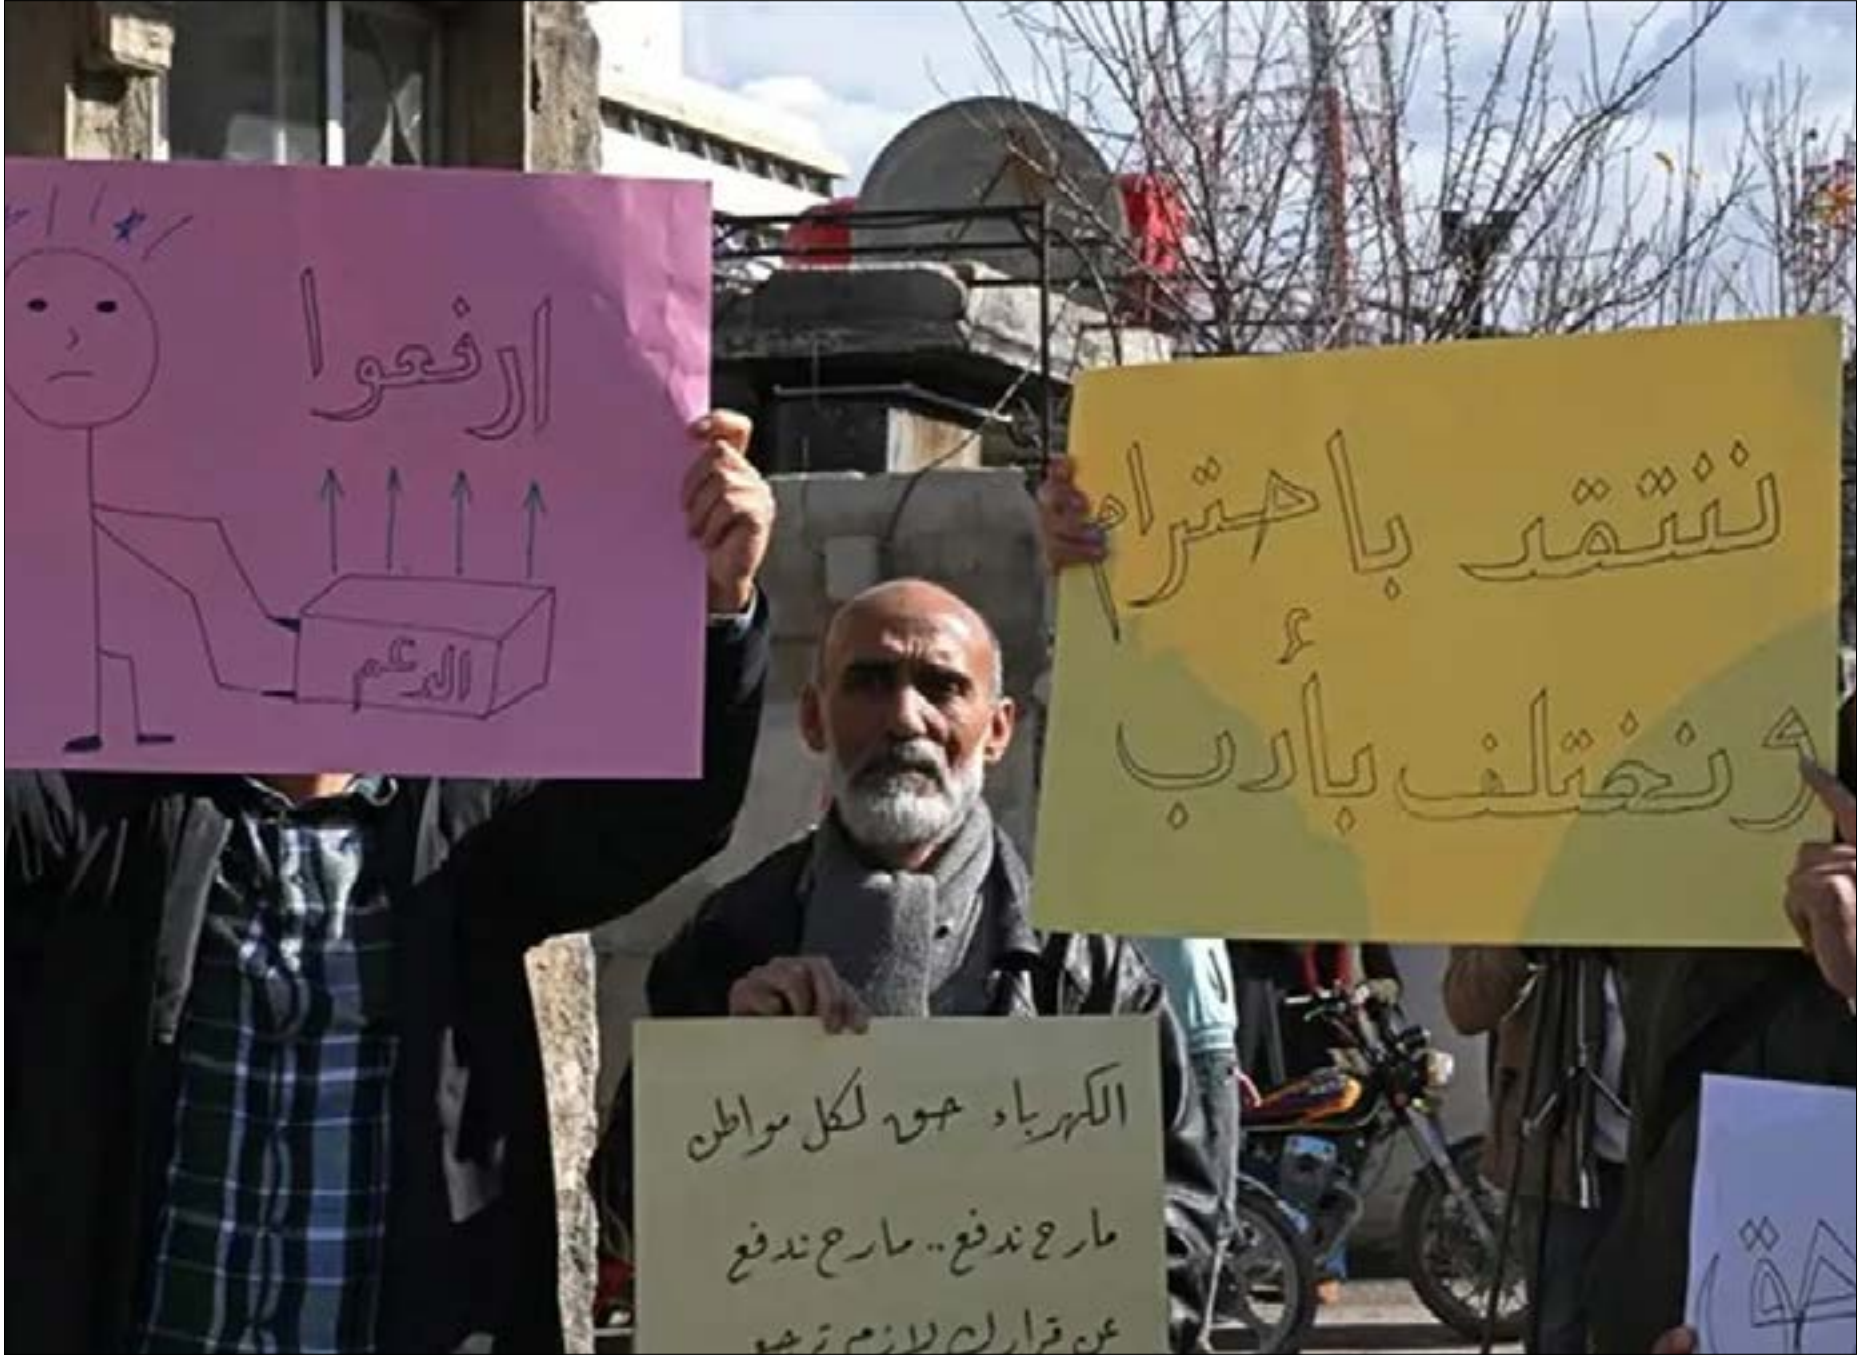 ارفعوا
الدعم
ننتقد باحترام
و نختلف بأدب
الكهرباء حق لكل مواطن
مارح ندفع.. مارح ندفع
عن قرارك لازم ترجع